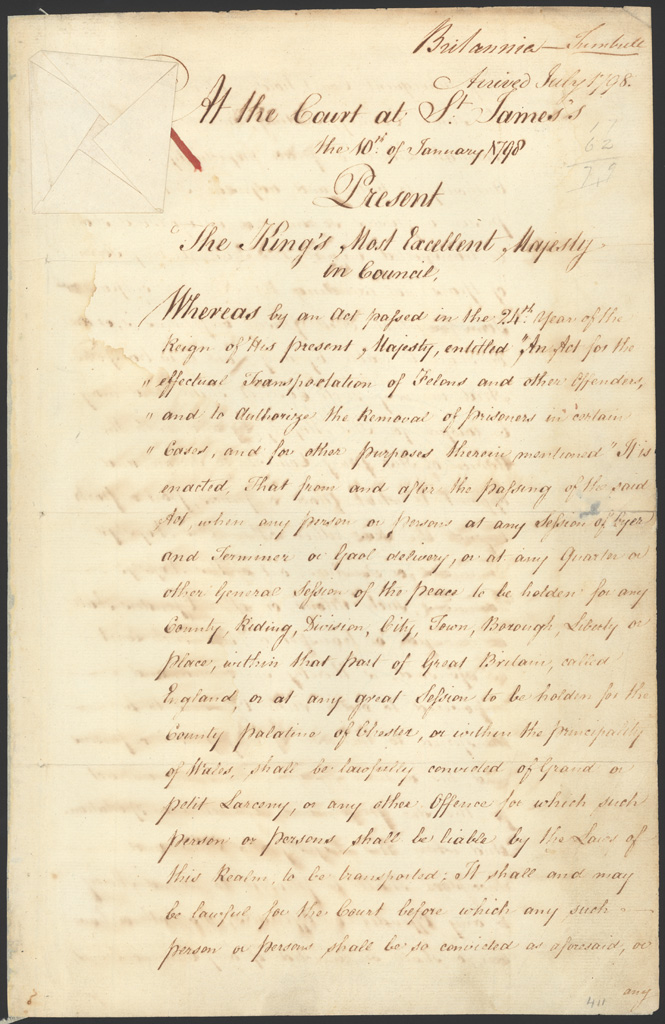 Britannia — Turnbull
Arrived July 1798.
At the Court at St. James's
the 10th. of January 1798
62
Present
The King's Most Excellent Majesty
in Council,
Whereas by an Act passed in the 24th. Year of the
Reign of His present Majesty, entitled "An Act for the
" effectual Transportation of Felons and other Offenders,
" and to authorize the Removal of prisoners in certain
" Cases, and for other purposes therein mentioned" It is
enacted, That from and after the passing of the said
Act, when any person or persons at any Session of Oyer
and Terminer or Gaol delivery, or at any Quarter or
other General Session of the peace to be holden for any
County, Riding, Division, City, Town, Borough, Liberty or
place, within that part of Great Britain, called
England, or at any great Session to be holden for the
County palatine of Chester, or within the principality
of Wales, shall be lawfully convicted of Grand or
petit Larceny, or any other Offence for which such
person or persons shall be liable by the Laws of
this Realm, to be transported: It shall and may
be lawful for the Court before which any such
person or persons shall be so convicted as aforesaid, or
any